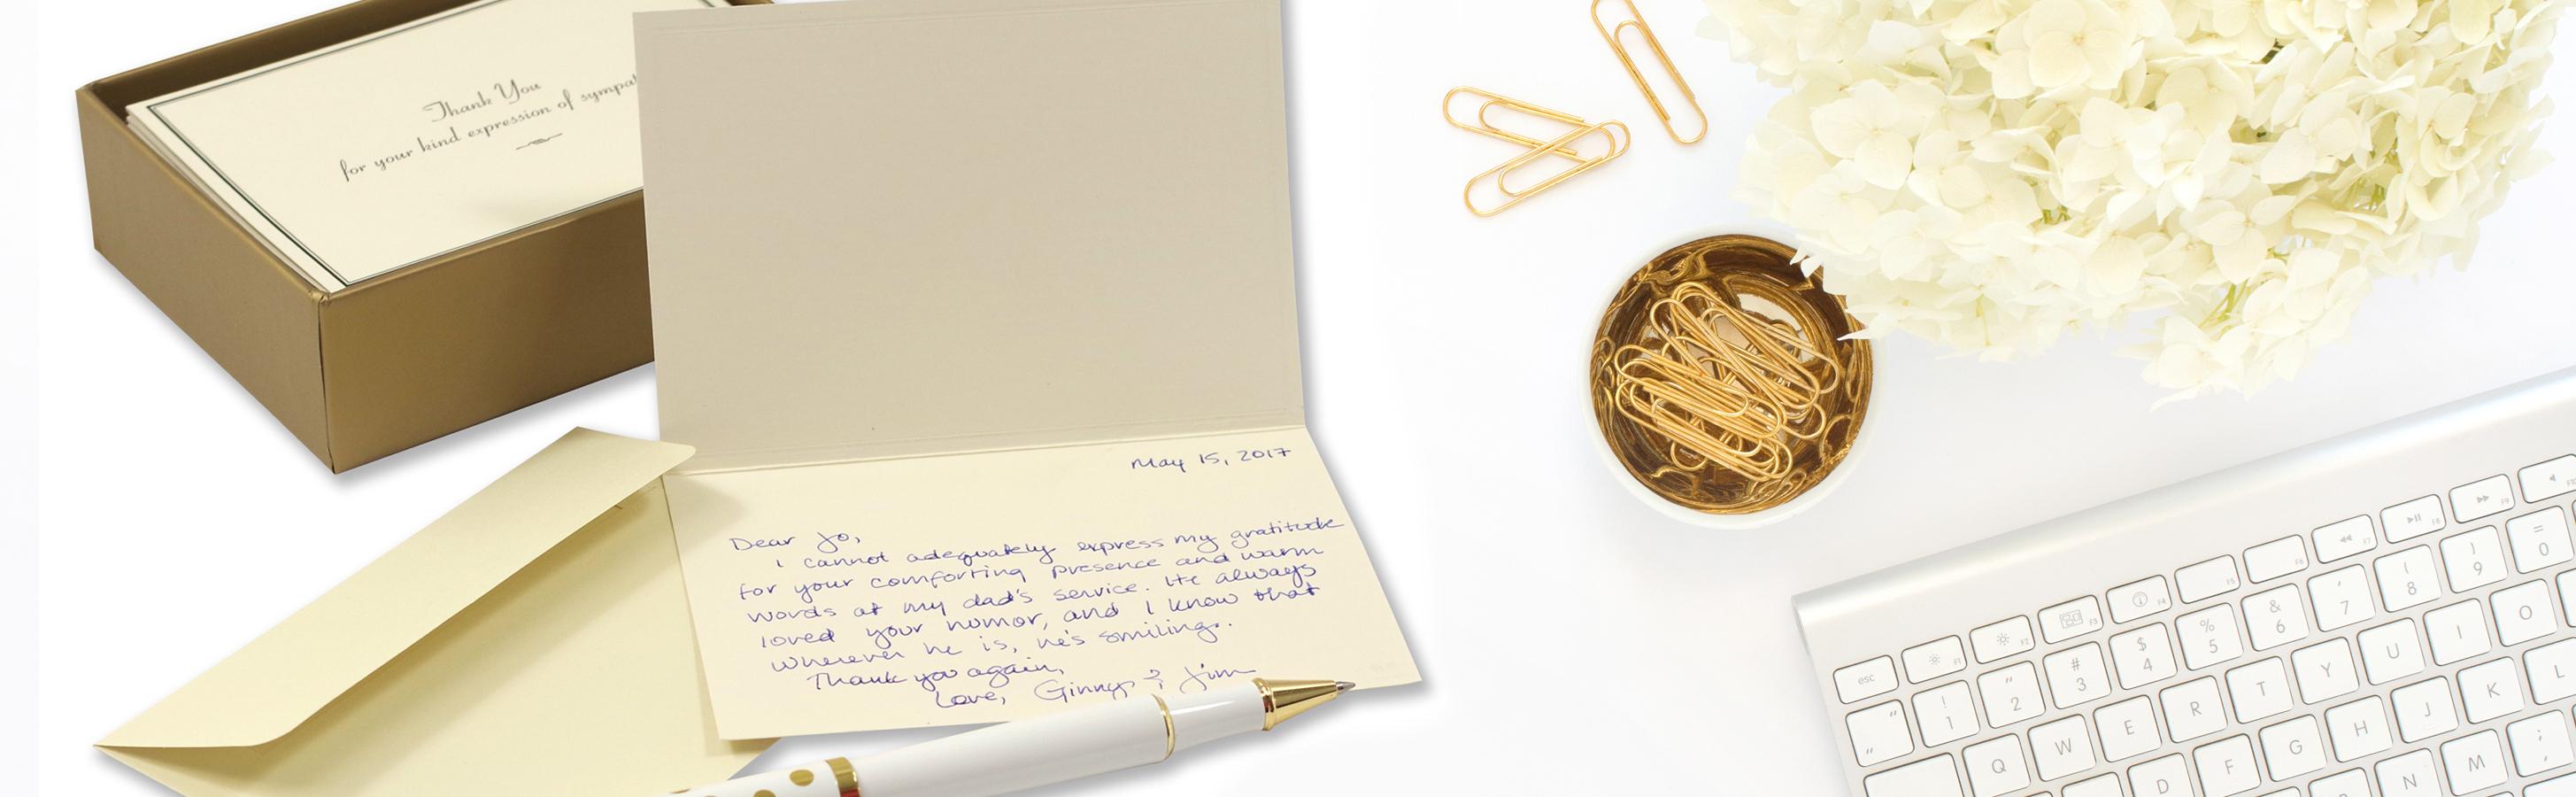 Thank You
for your kind expression of sympat
May 15, 2017
Dear Jo,
I cannot adequately express my gratitude
for your comforting presence and warm
words at my dad's service. He always
loved your humor, and I know that
wherever he is, he's smiling.
Thank you again,
Love, Ginny & Jim
esc F1 F2 F3 F4 F5 F6 F7 F8 F9
! 1 " 2 # 3 $ 4 % 5 & 6 ' 7 ( 8 ) 9 = 0
Q W E R T Y U I O
D F G H J K L
N M ; ,